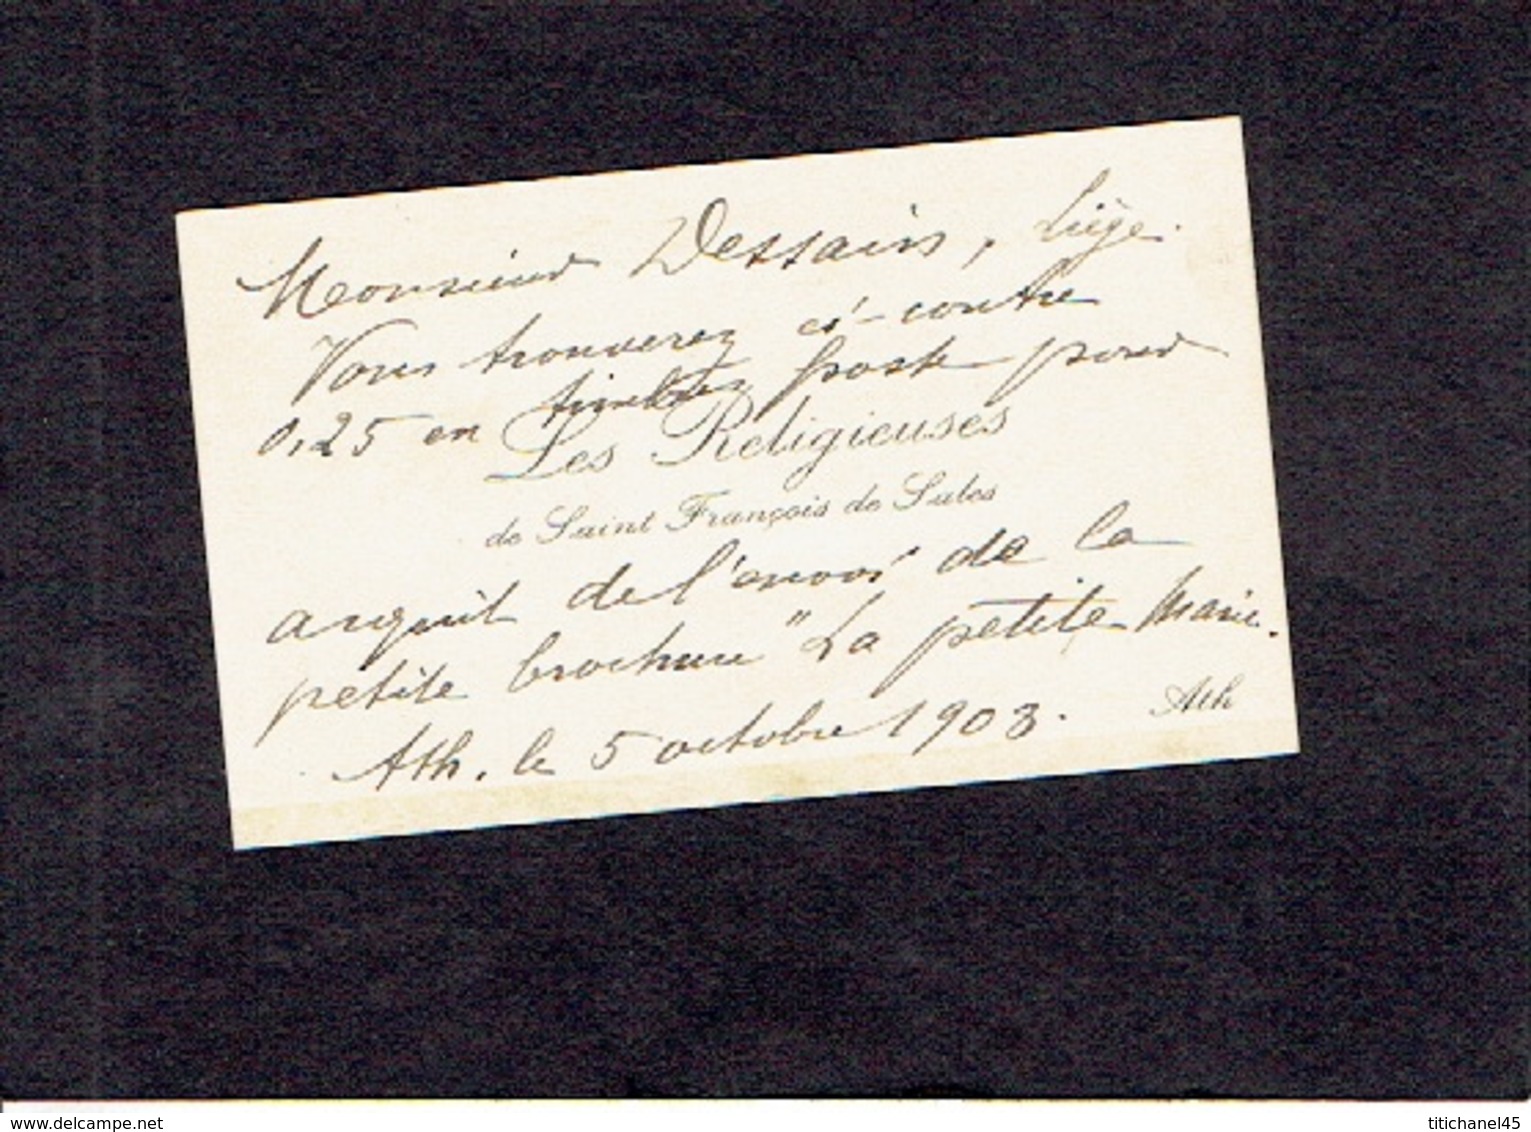 Monsieur Dessain, Liège.
Vous trouverez ci-contre
0,25 en timbres poste pour
Les Religieuses
de Saint François de Sales
acquit de l'envoi de la
petite brochure "La petite Marie.
Ath
Ath, le 5 octobre 1903.
www.delcampe.net
titichanel45